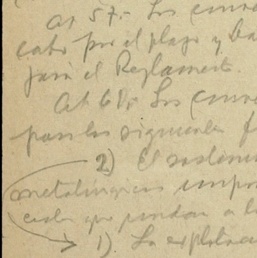 Art 57.- Los conve
cabo por el plazo y ba
jará el Reglamento.
Art 68.- Los conve
para los siguientes f
2) El sosteni
metalúrgicas impor
ciales que puedan a l
1) La explotac